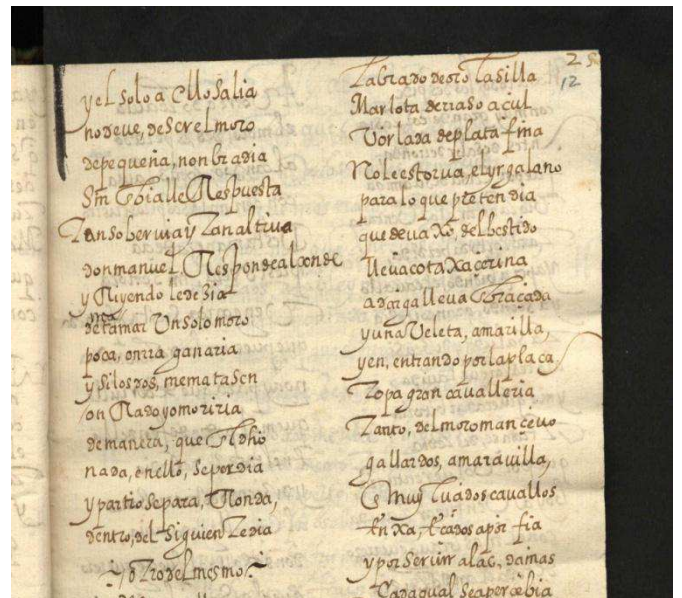 y el solo a ello Salia
no deue, de Ser el moro
de pequeña, nonbradia
Sin
Respuesta
Tan soberuia y Tan altiua
don manuel Responde al conde
y Riyendo le dezia
matar Un solo moro
poca, onrra ganaria
y Si los dos, me matasen
onRado yo moriria
de manera, que
nada, en ello, Se perdia
y partio Se para, Ronda,
dentro, del Siguiente dia
~ otro del mesmo ~
25
12
Labrado de oro la silla
Marlota de raso acul
Vorlada de plata fina
No le estorua, el yr galano
para lo que pretendia
que deuaxo, del bestido
lleua cota Xacerina
adarga lleua
y una Veleta, amarilla,
y en, entrando por la placa
Topa gran caualleria
Tanto, del moro mancevo
gallardos, a marauilla,
Muy
cauallos
y por Seruir a las, damas
Cada qual Se apercebia